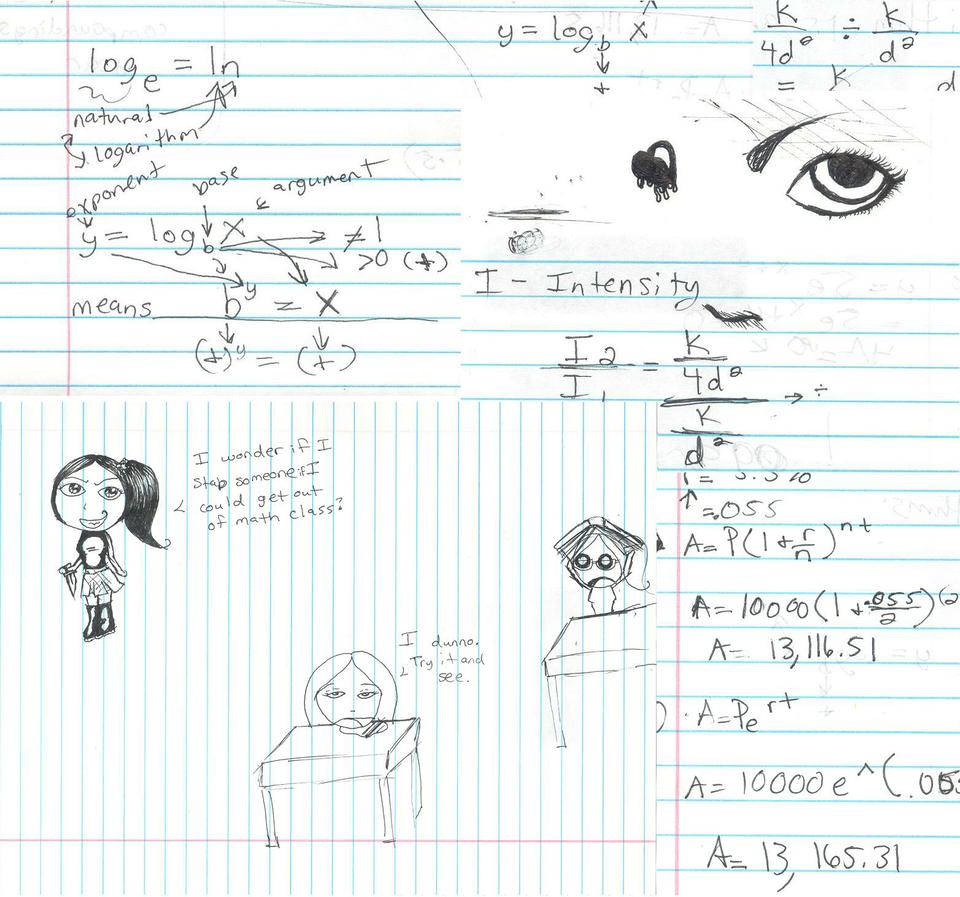 log_e = ln
natural
logarithm
exponent
base
argument
y = log_b X
≠ 1
>0 (+)
means b^y = X
(+)^y = (+)
y = log_b x
+
K/4d² ÷ K/d²
= K
d
I - Intensity
I2/I1 = (K/4d²)/(K/d²) → ÷
I wonder if I
stab someone if I
could get out
of math class?
I dunno.
Try it and
see.
=.055
A= P(1+r/n)^nt
A= 10000(1+.055/2)^(2
A= 13,116.51
A=Pe^rt
A= 10000e^(.055
A= 13,165.31